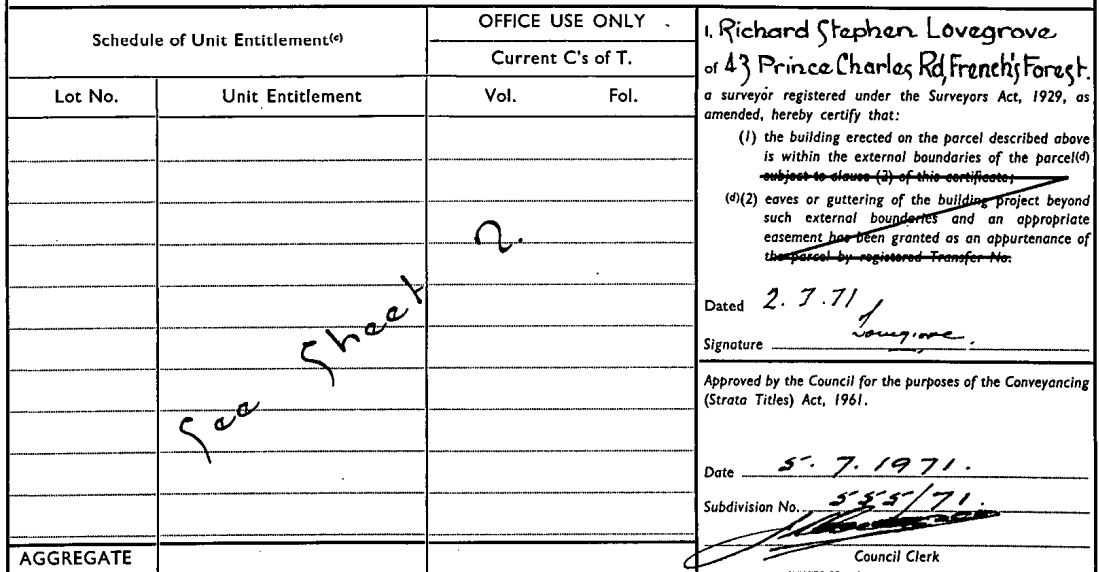 Schedule of Unit Entitlement(c)
OFFICE USE ONLY
Current C's of T.
Lot No.
Unit Entitlement
Vol.
Fol.
See Sheet 2.
AGGREGATE
I, Richard Stephen Lovegrove
of 43 Prince Charles Rd, French's Forest.
a surveyor registered under the Surveyors Act, 1929, as
amended, hereby certify that:
(1) the building erected on the parcel described above
is within the external boundaries of the parcel(d)
subject to clause (2) of this certificate;
(d)(2) eaves or guttering of the building project beyond
such external boundaries and an appropriate
easement has been granted as an appurtenance of
the parcel by registered Transfer No.
Dated 2.7.71
Signature Lovegrove.
Approved by the Council for the purposes of the Conveyancing
(Strata Titles) Act, 1961.
Date 5.7.1971.
Subdivision No. 555/71.
Council Clerk